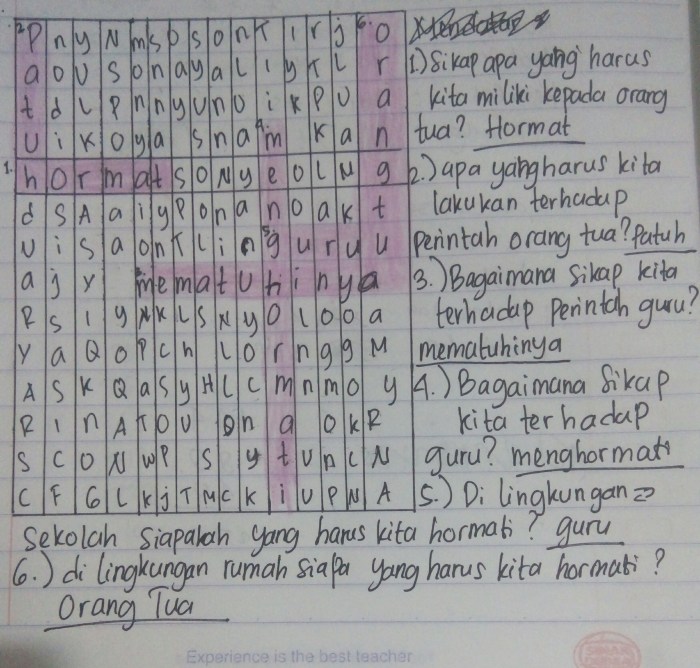 2. P n y N m s o s o n t i r j 6. o
a o U s o n a y a L i y t L r
t d L P n n y u n o i k P U a
U i k o y a s n a 4. m k a n
1. h o r m a t s o N y e o L N g
d S A a i y P o n a n o a k t
U i s a o n t L i n 5. g u r u u
a j y 3. m e m a t u h i n y a
R S I Y N K L S N y O L o o a
Y a Q o P C h L o r n g g M
A S K Q a S y H L C m n m o y
R I n A T O U O n a o k R
S C O N W P S y t U n C N
C F G L K j T M C K i U P N A
1) Sikap apa yang harus
kita miliki kepada orang
tua? Hormat
2.) apa yang harus kita
lakukan terhadap
perintah orang tua? Patuh
3.) Bagaimana Sikap kita
terhadap Perintah guru?
mematuhinya
4.) Bagaimana Sikap
kita terhadap
guru? menghormati
5.) Di lingkungan =
Sekolah Siapakah yang harus kita hormati? guru
6.) di lingkungan rumah siapa yang harus kita hormati?
Orang Tua
Experience is the best teacher